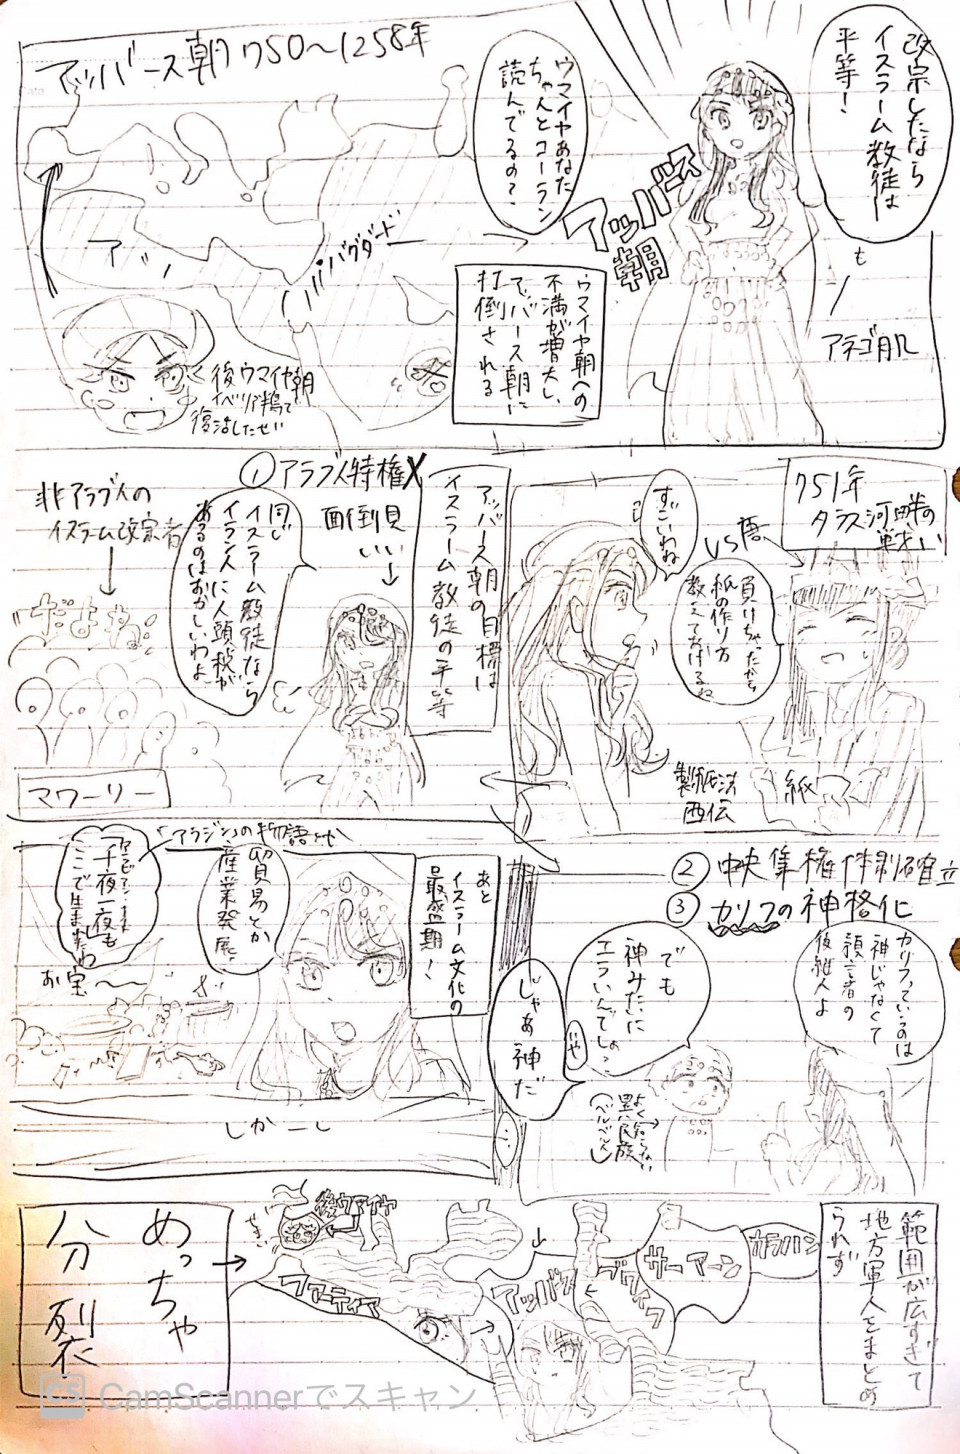 アッバース朝 750〜1258年
改宗したなら
イスラーム教徒は
平等！
ウマイヤあなた
ちゃんとコーラン
読んでるの？
アッバース
朝
も
アネゴ肌
バグダード
アバ
ウマイヤ朝への
不満が増大し、
アッバース朝に
打倒される
後ウマイヤ朝
イベリア半島で
復活したぜい
751年
タラス河畔の
戦い
VS 唐
すごいわね
負けちゃったから
紙の作り方
教えてあげるね
紙
製紙法
西伝
アッバース朝の目標は
イスラーム教徒の平等
①アラブ人特権X
面倒見
いい
同じ
イスラーム教徒なら
イラン人に人頭税が
あるのはおかしいわよ
非アラブ人の
イスラーム改宗者
だよね
マワーリー
②中央集権体制確立
③カリフの神格化
カリフっていうのは
神じゃなくて
預言者の
後継人よ
でも
神みたいに
エライんでしょ？
いや
じゃあ神だ
…
よく知らない
異民族
(ベルベル人)
あと
イスラーム文化の
最盛期！
貿易とか
産業発展。
「アラジン」の物語とか
千夜一夜も
ここで生まれたわ
お宝
しかーし
範囲が広すぎて
地方軍人をまとめ
られず
後ウマイヤ
せまい
ファーティマ
アッバース
ブワイフ
サーマーン
カラハン
めっちゃ
分裂
CS CamScannerでスキャン